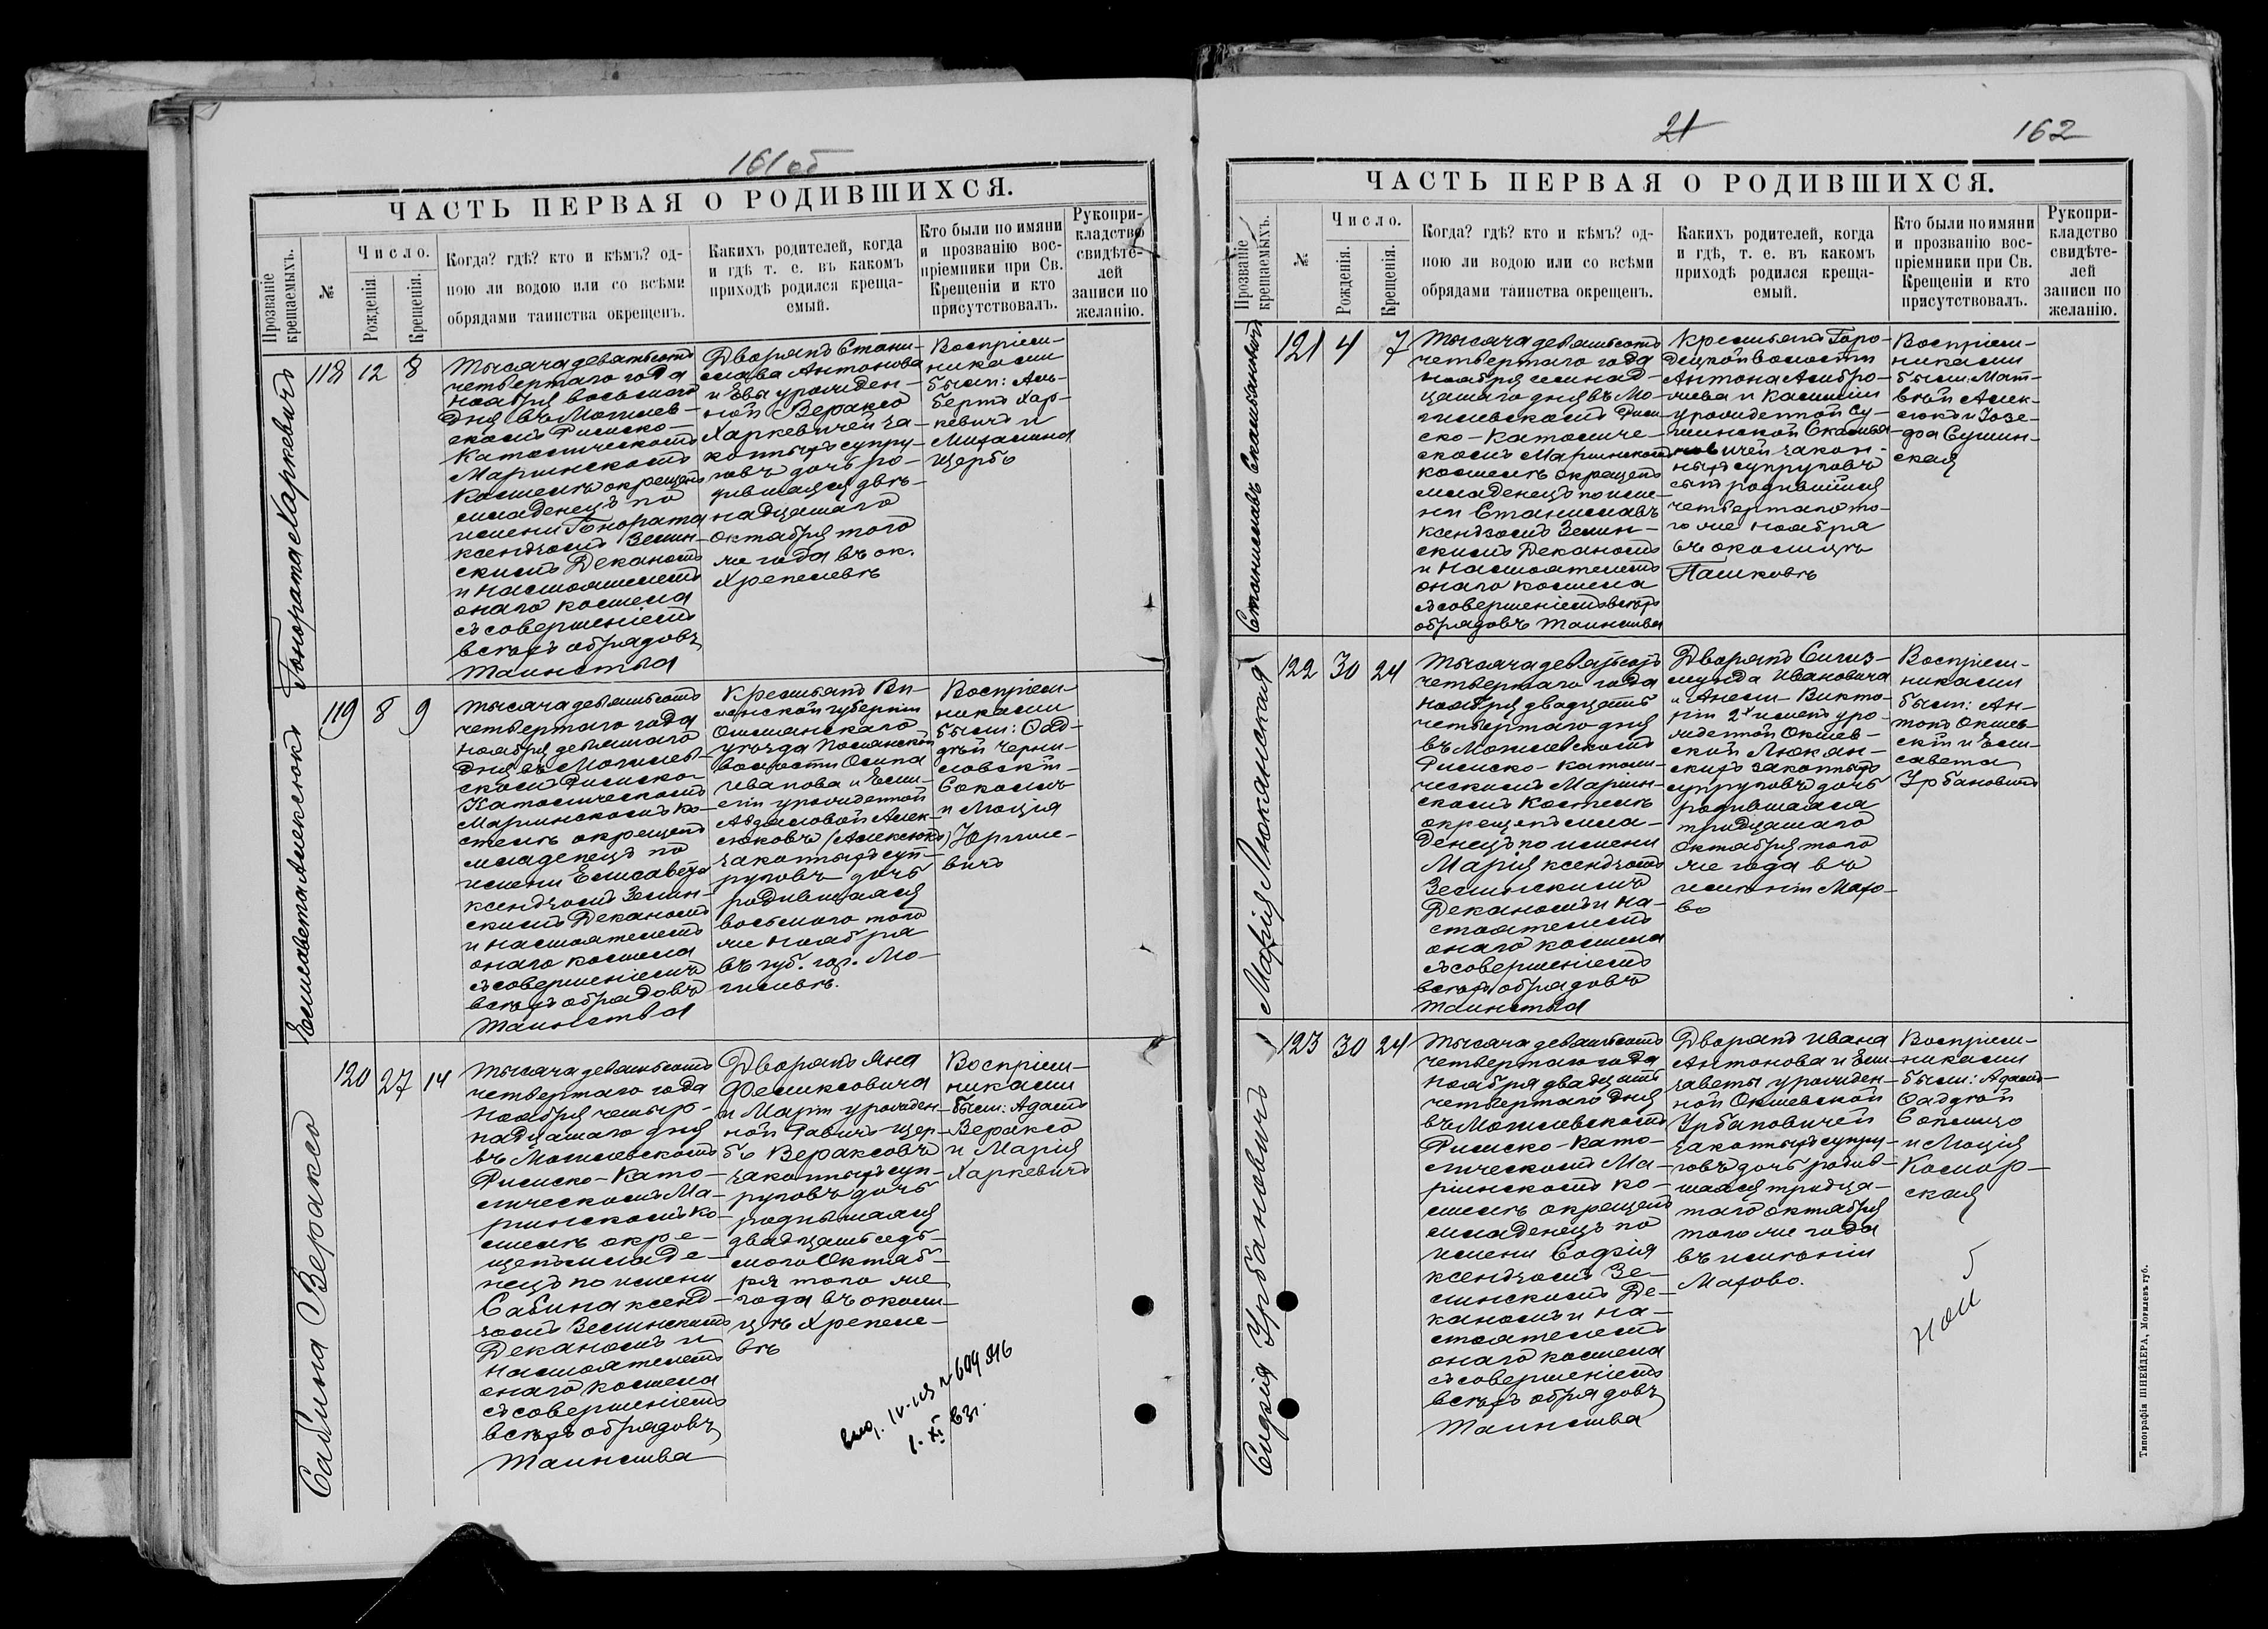 161 об
ЧАСТЬ ПЕРВАЯ О РОДИВШИХСЯ.
Прозваніе крещаемыхъ.
№
Число.
Рожденія.
Крещенія.
Когда? гдѣ? кто и кѣмъ? од-
ною ли водою или со всѣми
обрядами таинства окрещенъ.
Какихъ родителей, когда
и гдѣ т. е. въ какомъ
приходѣ родился креща-
емый.
Кто были по имяни
и прозванію вос-
пріемники при Св.
Крещеніи и кто
присутствовалъ.
Рукопри-
кладство
свидѣте-
лей
записи по
желанію.
Гонората Харкевичъ
118 12 8
Тысяча девятьсотъ
четвертаго года
ноября восьмого
дня въ Могилев-
скомъ Римско-
Католическомъ
Маріинскомъ
костелѣ окрещенъ
младенецъ по
имени Гонората
ксендзомъ Зелин-
скимъ Деканомъ
и настоятелемъ
онаго костела
съ совершеніемъ
всѣхъ обрядовъ
Таинства
Дворянъ Стани-
слава Антонова
и Евы урожден-
ной Вераксо
Харкевичей за-
конныхъ супру-
говъ дочь ро-
дившаяся двѣ-
надцатаго
Октября того
же года въ ок.
Хрепелевѣ
Воспріем-
никами
были: Аль-
бертъ Хар-
кевичъ и
Михалина
Щербо
Елисавета Алексюкъ
119 8 9
Тысяча девятьсотъ
четвертаго года
ноября девятаго
дня въ Могилев-
скомъ Римско-
Католическомъ
Маріинскомъ ко-
стелѣ окрещенъ
младенецъ по
имени Елисавета
ксендзомъ Зелин-
скимъ Деканомъ
и настоятелемъ
онаго костела
съ совершеніемъ
всѣхъ обрядовъ
Таинства
Крестьянъ Ви-
ленской губерніи
Ошмянскаго
уѣзда Полянской
волости Осипа
Иванова и Еми-
ліи урожденной
Авдаловой Алек-
сюковъ (Алексюкъ)
законныхъ суп-
руговъ дочь
родившаяся
восьмого того
же ноября
въ губ. гор. Мо-
гилевѣ.
Воспріем-
никами
были: Фад-
дей Черни-
ловскій-
Соколъ
и Люція
Юргиле-
вичъ
Сабина Вераксо
120 27 14
Тысяча девятьсотъ
четвертаго года
ноября четыр-
надцатаго дня
въ Могилевскомъ
Римско-Като-
лическомъ Ма-
ріинскомъ ко-
стелѣ окре-
щенъ младе-
нецъ по имени
Сабина ксенд-
зомъ Зелинскимъ
Деканомъ и
настоятелемъ
онаго костела
съ совершеніемъ
всѣхъ обрядовъ
Таинства
Дворянъ Яна
Феликсовича
и Маріи урожден-
ной Равичъ-Щер-
бо Вераксовъ
законныхъ суп-
руговъ дочь
родившаяся
двадцать седь-
мого Октяб-
ря того же
года въ околи-
цѣ Хрепеле-
вѣ
Воспріем-
никами
были: Адамъ
Вераксо
и Марія
Харкевичъ
21
162
ЧАСТЬ ПЕРВАЯ О РОДИВШИХСЯ.
Прозваніе крещаемыхъ.
№
Число.
Рожденія.
Крещенія.
Когда? гдѣ? кто и кѣмъ? од-
ною ли водою или со всѣми
обрядами таинства окрещенъ.
Какихъ родителей, когда
и гдѣ, т. е. въ какомъ
приходѣ родился креща-
емый.
Кто были по имяни
и прозванію вос-
пріемники при Св.
Крещеніи и кто
присутствовалъ.
Рукопри-
кладство
свидѣте-
лей
записи по
желанію.
121 4 7
Тысяча девятьсотъ
четвертаго года
ноября
дня въ Мо-
гилевскомъ Рим-
ско-Католиче-
скомъ Маріинскомъ
костелѣ окрещенъ
младенецъ по име-
ни Станиславъ
ксендзомъ Зелин-
скимъ Деканомъ
и настоятелемъ
онаго костела
съ совершеніемъ всѣхъ
обрядовъ Таинства
Крестьянъ Горо-
децкой волости
Антона Амбро-
жева и Казиміи
урожденной Су-
шинской
законныхъ супруговъ
сынъ родившійся
четвертаго то-
го же ноября
въ околицѣ
Пашковѣ
Воспріем-
никами
были: Мат-
вѣй Алек-
сюкъ и Іозе-
фа Сушин-
ская
Марія Люжанская
122 30 24
Тысяча девятьсотъ
четвертаго года
ноября двадцать
четвертаго дня
въ Могилевскомъ
Римско-Католи-
ческомъ Маріин-
скомъ Костелѣ
окрещенъ мла-
денецъ по имени
Марія ксендзомъ
Зелинскимъ
Деканомъ и на-
стоятелемъ
онаго костела
съ совершеніемъ
всѣхъ обрядовъ
Таинства
Дворянъ Сигиз-
мунда Ивановича
и Анели-Викто-
ріи 2х именъ уро-
жденной Окулев-
ской Люжан-
скихъ законныхъ
супруговъ дочь
родившаяся
тридцатаго
Октября того
же года въ
имѣніи Махо-
во
Воспріем-
никами
были: Ан-
тонъ Окулев-
скій и Ели-
савета
Урбановичъ
Софія Урбановичъ
123 30 24
Тысяча девятьсотъ
четвертаго года
ноября двадцать
четвертаго дня
въ Могилевскомъ
Римско-Като-
лическомъ Ма-
ріинскомъ ко-
стелѣ окрещенъ
младенецъ по
имени Софія
ксендзомъ Зе-
линскимъ Де-
каномъ и на-
стоятелемъ
онаго костела
съ совершеніемъ
всѣхъ обрядовъ
Таинства
Дворянъ Ивана
Антонова и Ели-
заветы урожден-
ной Окулевской
Урбановичей
законныхъ супру-
говъ дочь родив-
шаяся тридца-
таго Октября
того же года
въ имѣніи
Махово.
Воспріем-
никами
были: Адамъ-
Фаддей
и Люція
ская
Типографія ШНЕЙДЕРА, Могилевъ губ.